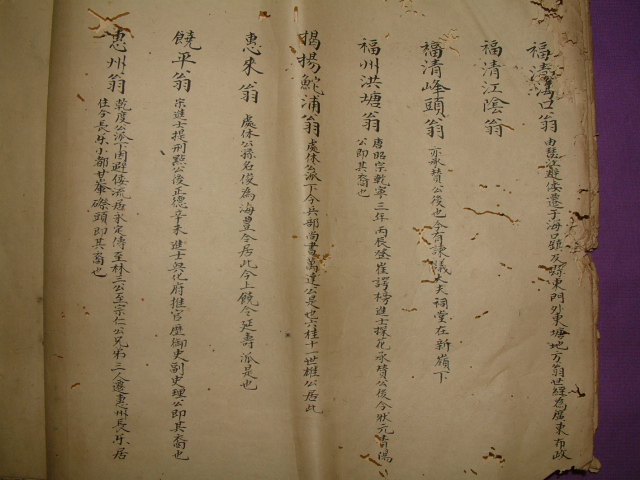 福清海口翁 由莒溪避倭遷于海口鎮及縣東門外東塘地方翁世經為廣東布政
福清江陰翁
福清峰頭翁 亦承贊公後也今有諫議大夫祠堂在新嶺下
福州洪塘翁 唐昭宗乾寧三年丙辰崔諤榜進士探花承贊公後今狀元青陽
公即其裔也
揭揚鮀浦翁 處休公派下今兵部尚書萬達公是也六桂十一世樵公居此
惠來翁 處休公孫名俊為海豊令居此今上饒令延壽派是也
饒平翁 宗進士提刑點公後正德辛未進士興化府推官歷御史副史理公即其裔也
惠州翁 乾度公派下因避倭流居永定傳至林三公至宗仁公兄弟三人遷惠州長乐居
住今長乐小都甘華磜頭即其裔也